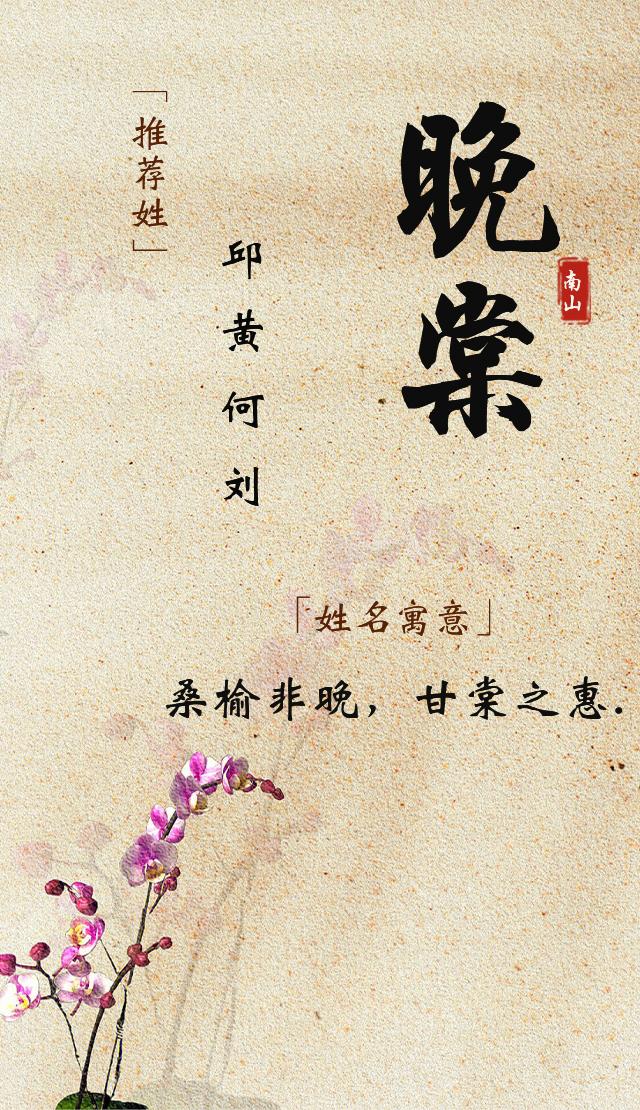 晚棠
南山
「推荐姓」
邱
黄
何
刘
「姓名寓意」
桑榆非晚，甘棠之惠.